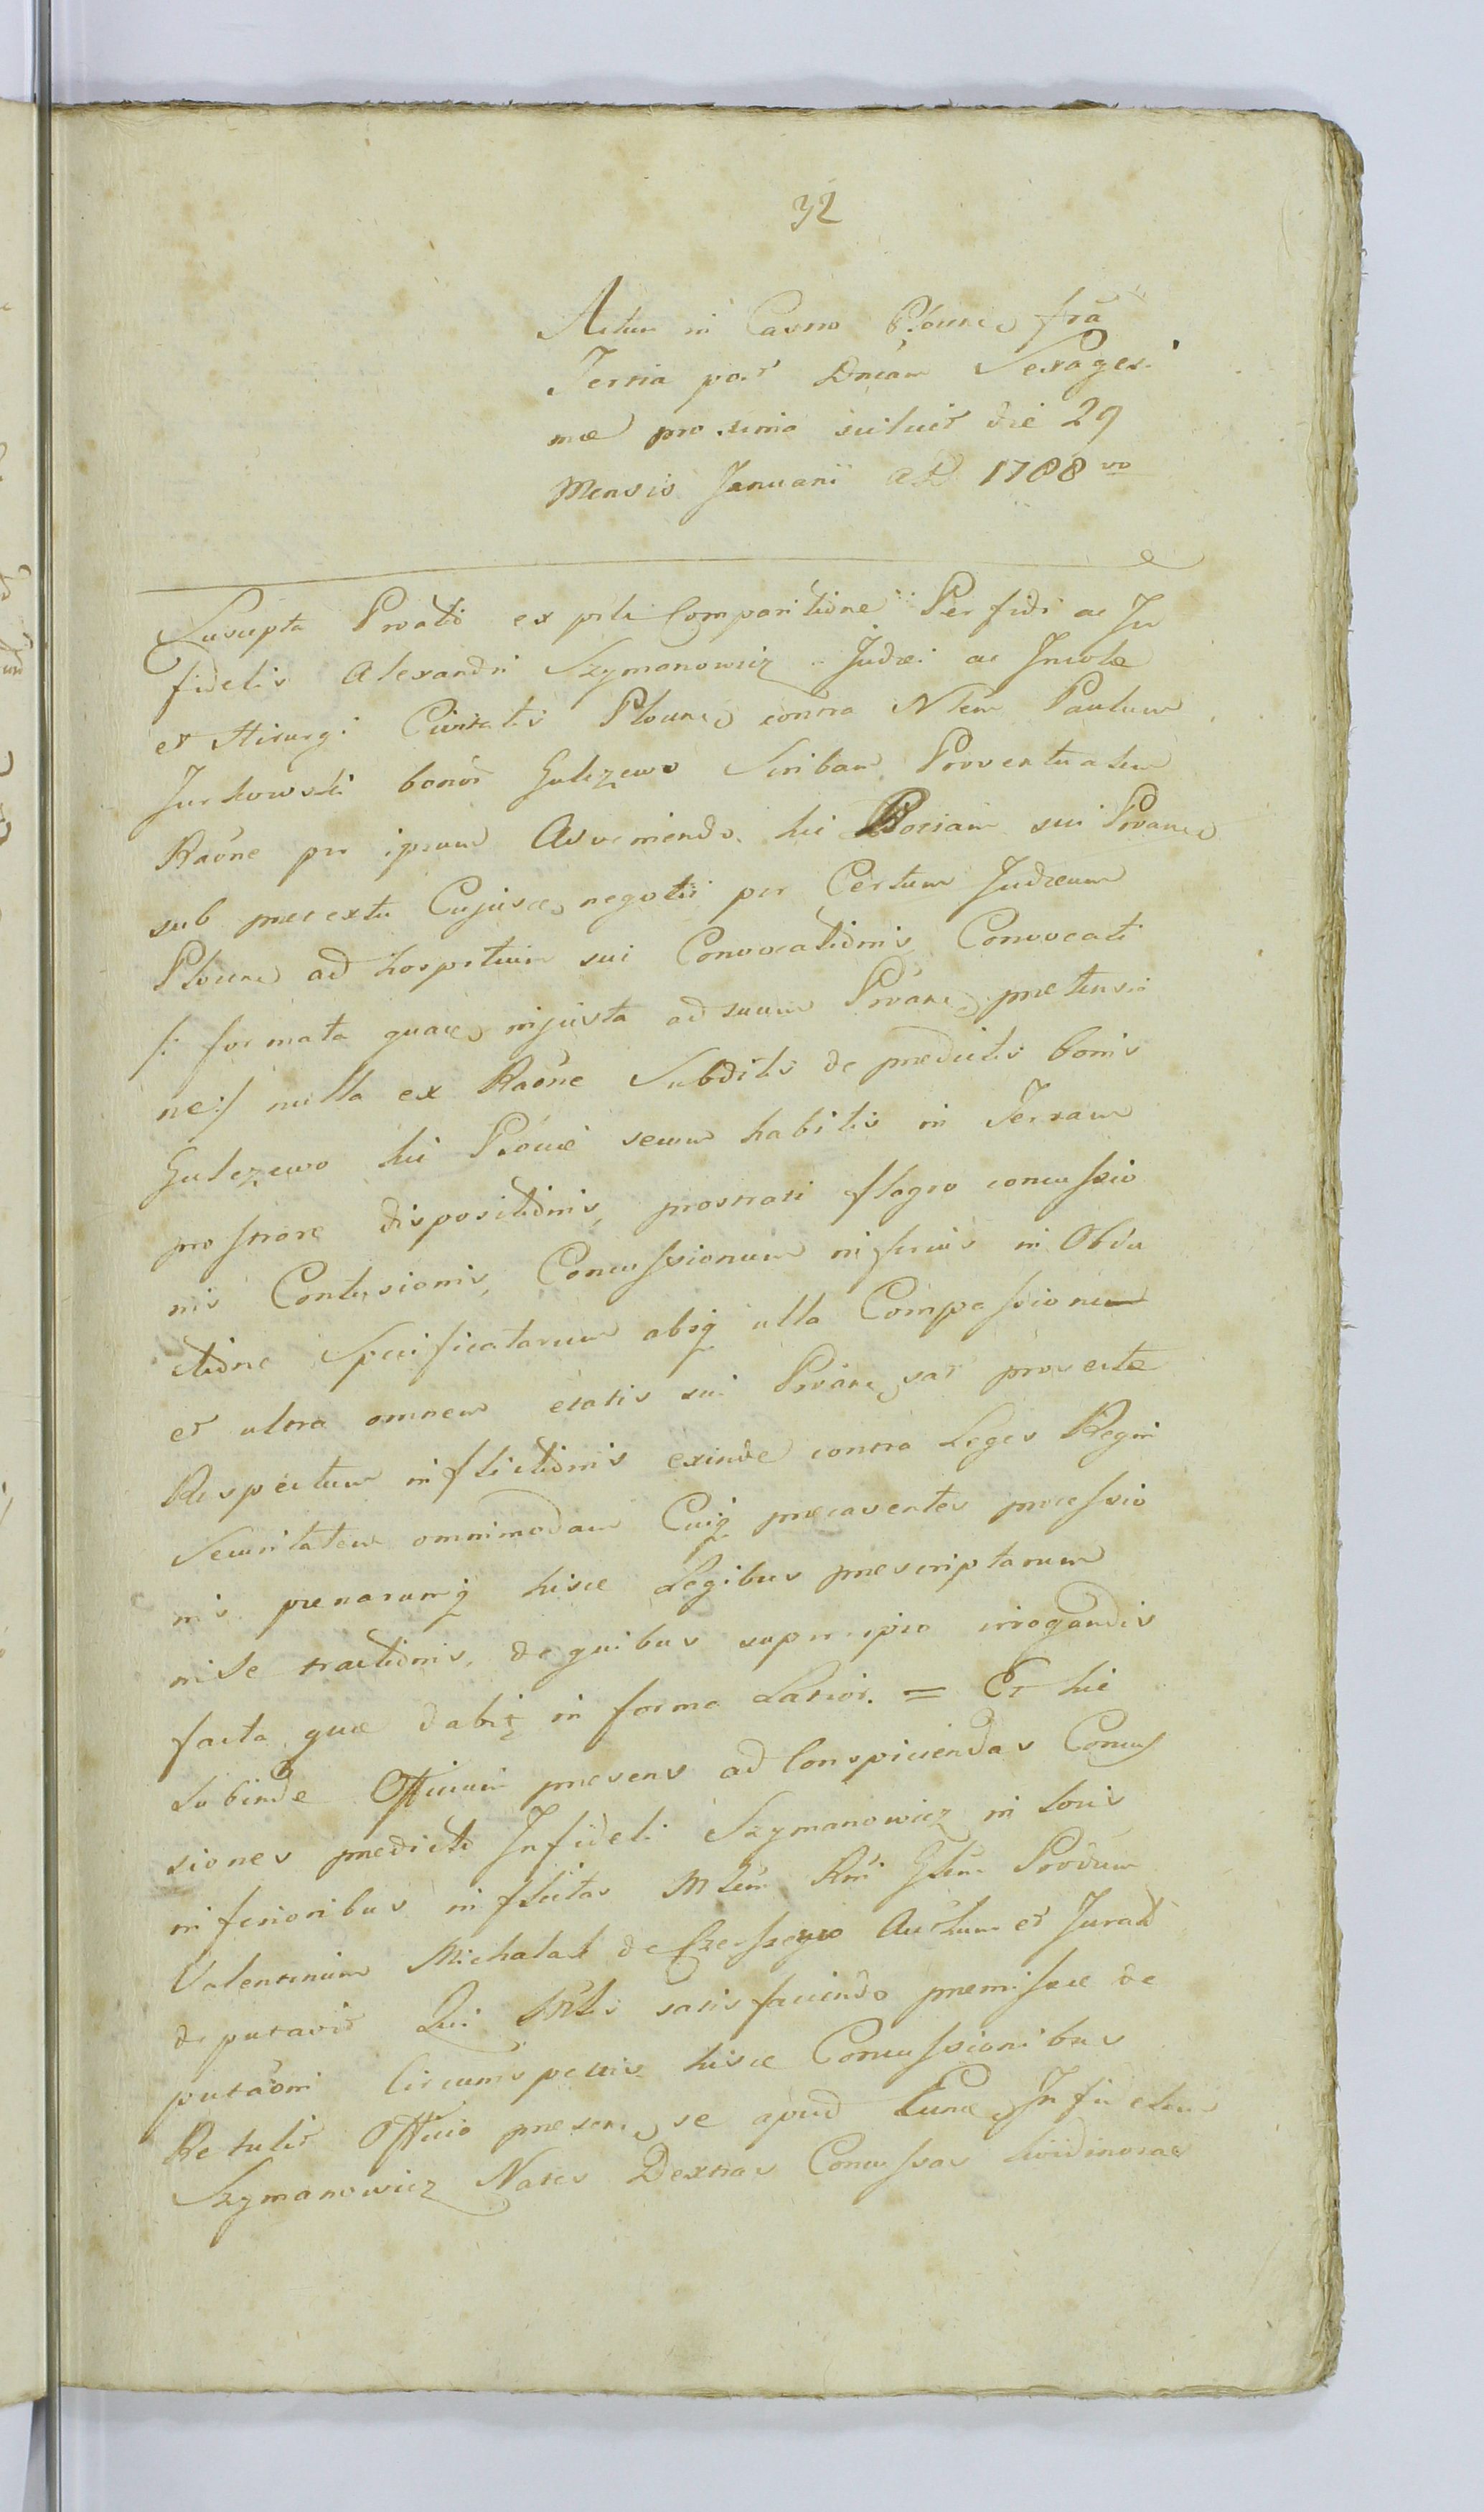 32
Actum in Castro Plocens fria
Tertia post Dnicam Sexagesi
mæ proxima scilicet die 29
Mensis Januarii AD 1788vo
Suscepta Protatio ex prti Comparitione Perfidi ac In
fidelis Alexandri Szymanowicz Judæi ac Incolæ
et Hirurgi Civitatis Plocens contra Nlem Paulum
Jurkowski bonor Gulczewo Scribam Proventualem
Raône per ipsum Adveniendo hic Plociam sui Protantis
sub pretextu Cujusce negotii per Certum Judæum
Plocens ad hospitium sui Convocationis Convocati
/: formata quace injusta ad suum Protans pretensio
ne:/ nulla ex Raône Subditis de prædictis bonis
Gulczewo hic Plociæ secum habitis in Terram
prosternere dispositionis, prostrati flagro concussio
nis Contusionis, Concussionum inferius in Obdu
ctione Specificatarum absq ulla Compassione
et ultra omnem etatis sui Protans sat provectæ
Respectum inflictionis exinde contra Leges Regni
Securitatem omnimodam Cuiq præcaventes processio
nis penarumq hisce Legibus prescriptarum
in Se tractionis, de quibus supr ipso irrogandis
facta quæ dabit in forma Latior. = Et hic
Subinde Officium presens ad Conspiciendas Concus
siones predicto Infideli Szymanowicz in locis
inferioribus inflictas Mlem Rni Glem Prodm
Valentinum Michalak de auchum et Jurat
deputavit Qui satisfaciendo premissæ de
putaôni Circumspectis hisce Concussionibus
Retulit Officio presens se apud Eunde Infidelem
Szymanowicz Nates Dextras Concussas lividinosas